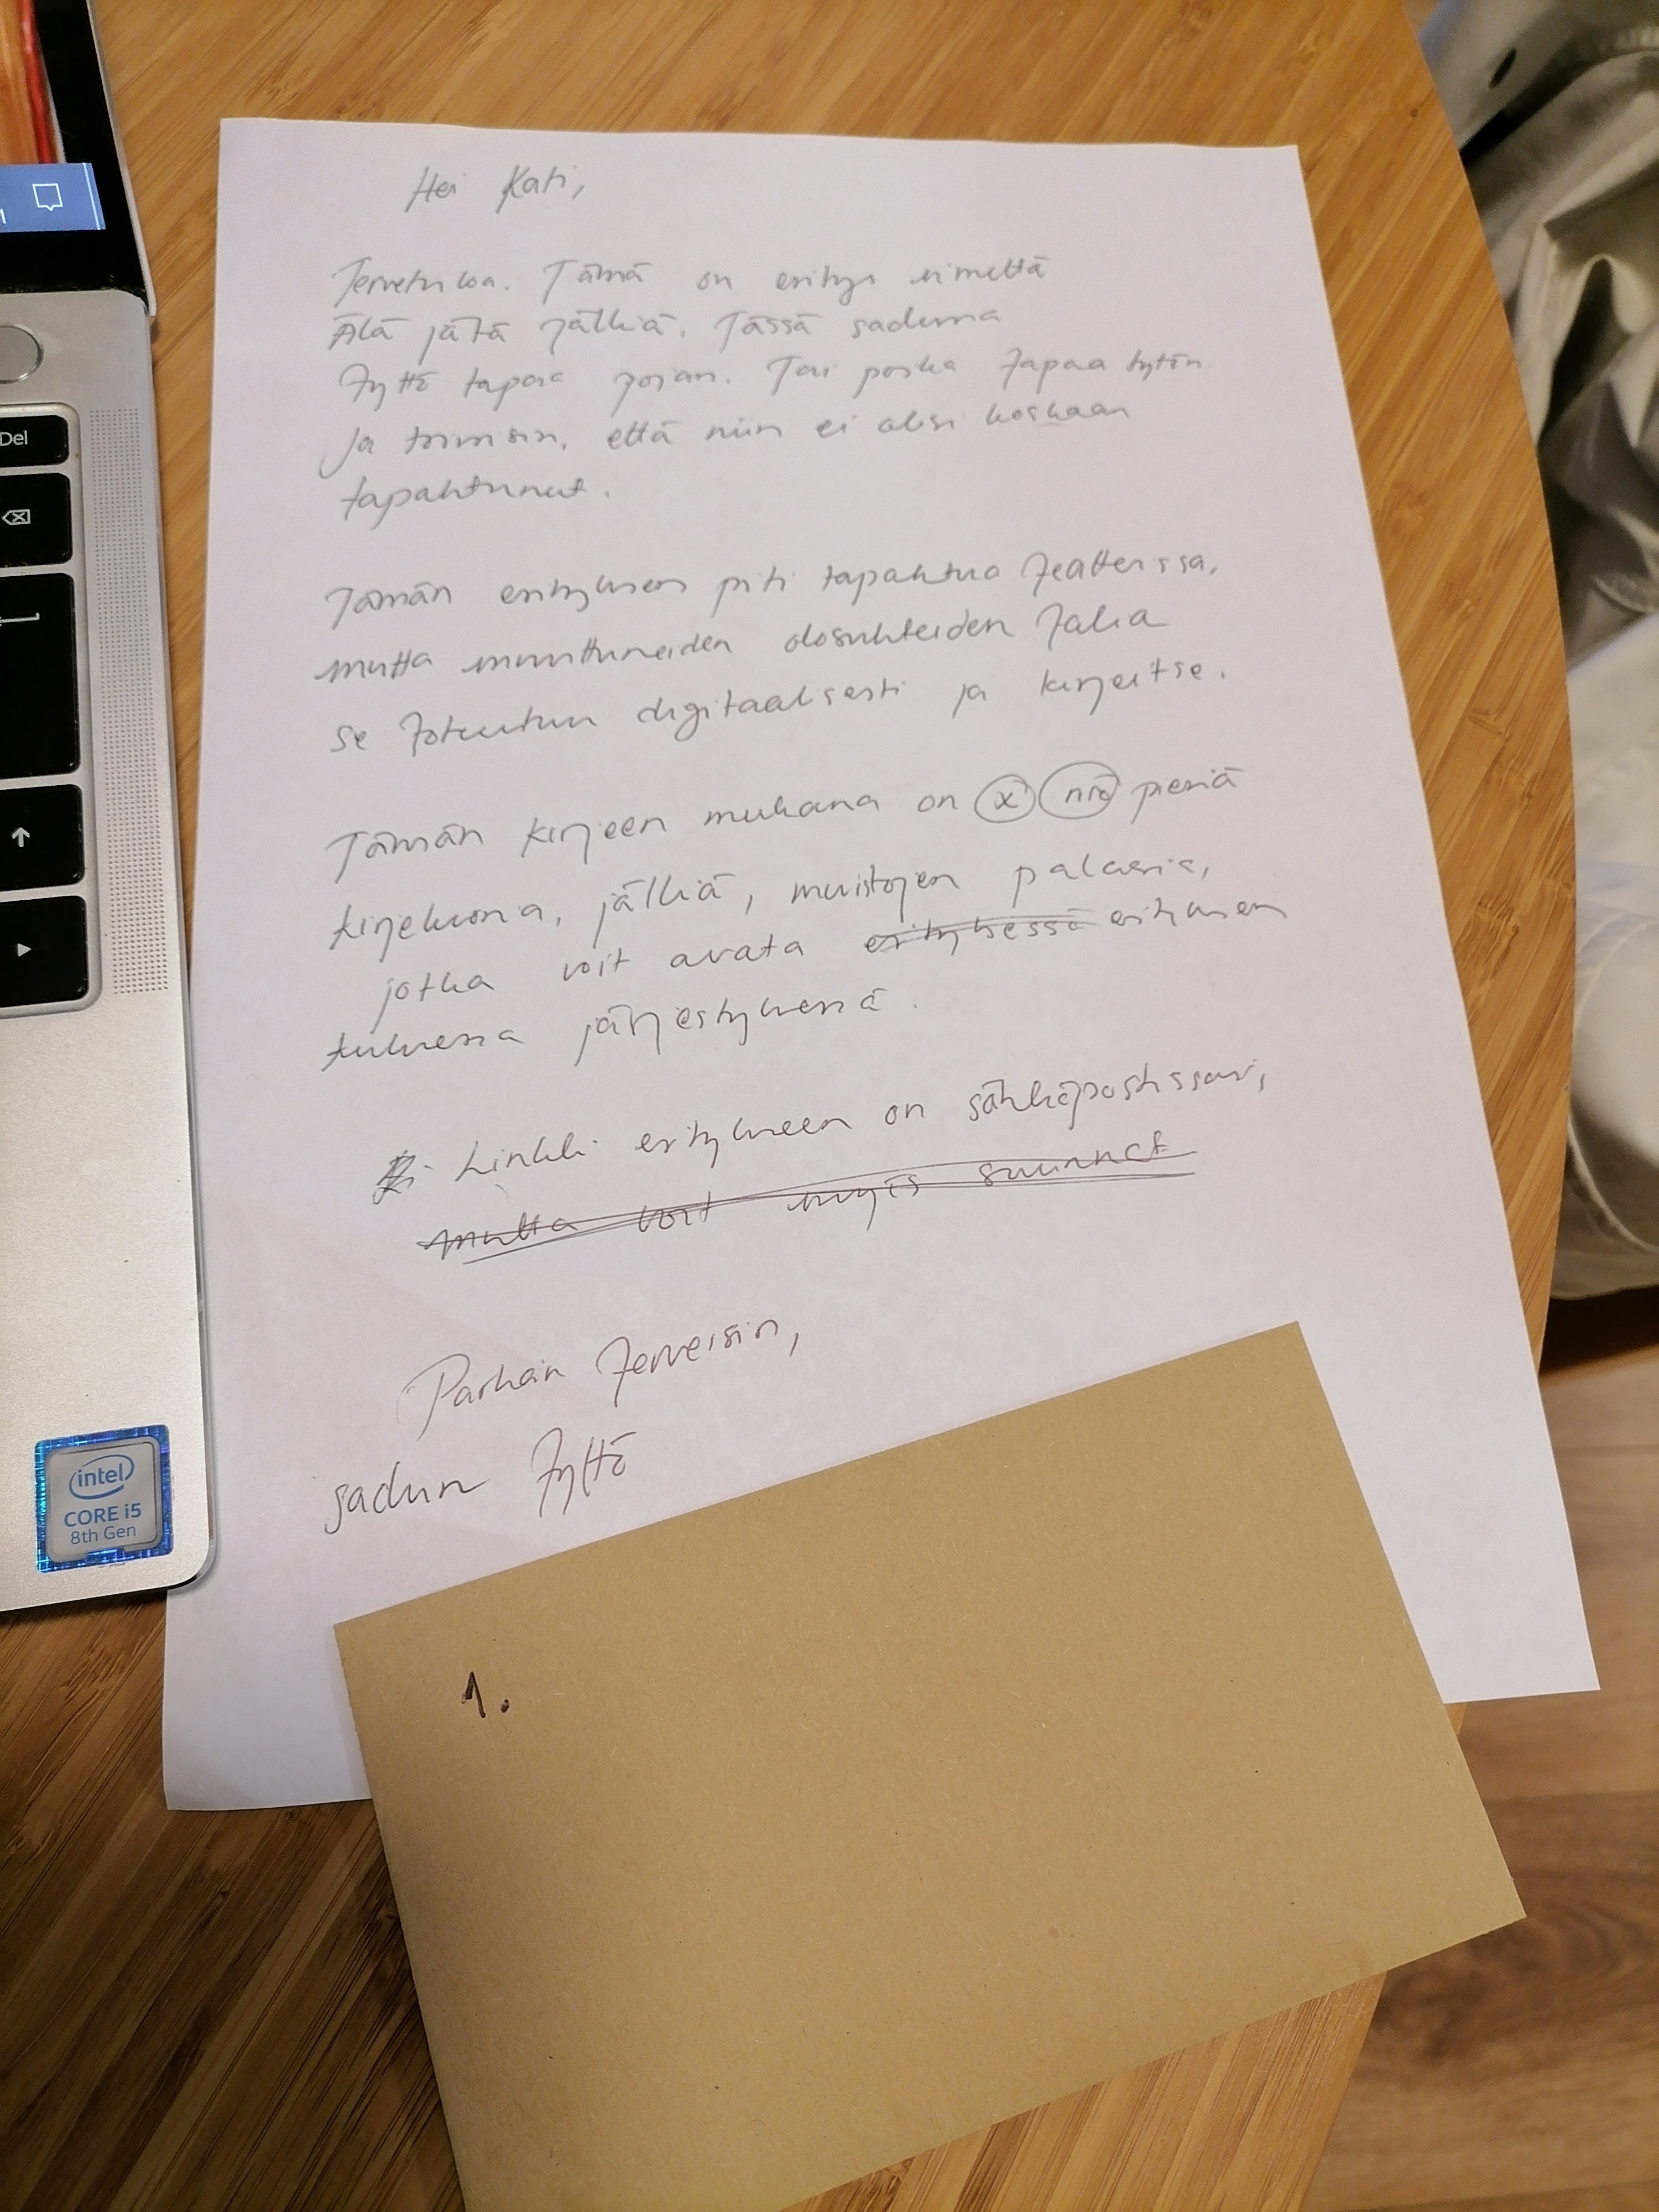 Hei Kati,
Tervetuloa. Tämä on esitys nimeltä
Älä jätä jälkiä. Tässä sadussa
tyttö tapaa pojan. Tai poika tapaa tytön.
Ja toivoisin, että niin ei olisi koskaan
tapahtunut.
Tämän esityksen piti tapahtua teatterissa,
mutta muuttuneiden olosuhteiden takia
se toteutuu digitaalisesti ja kirjeitse.
Tämän kirjeen mukana on x pieniä
kirjekuoria, jälkiä, muistojen palasia,
jotka voit avata esityksessä esityksen
kuluessa järjestyksessä.
Linkki esitykseen on sähköpostissasi,
mutta voit myös
Parhain terveisin,
sadun tyttö
1.
Del
intel
CORE i5
8th Gen